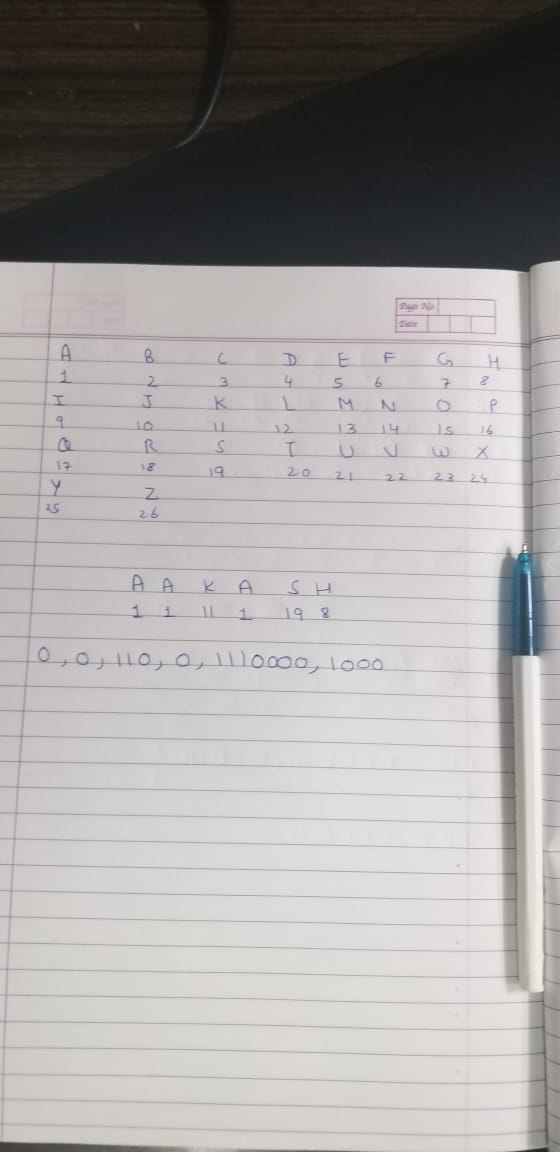 Page No.
Date
A B C D E F G H
1 2 3 4 5 6 7 8
I J K L M N O P
9 10 11 12 13 14 15 16
Q R S T U V W X
17 18 19 20 21 22 23 24
Y Z
25 26
A A K A S H
1 1 11 1 19 8
0, 0, 110, 0, 1110000, 1000